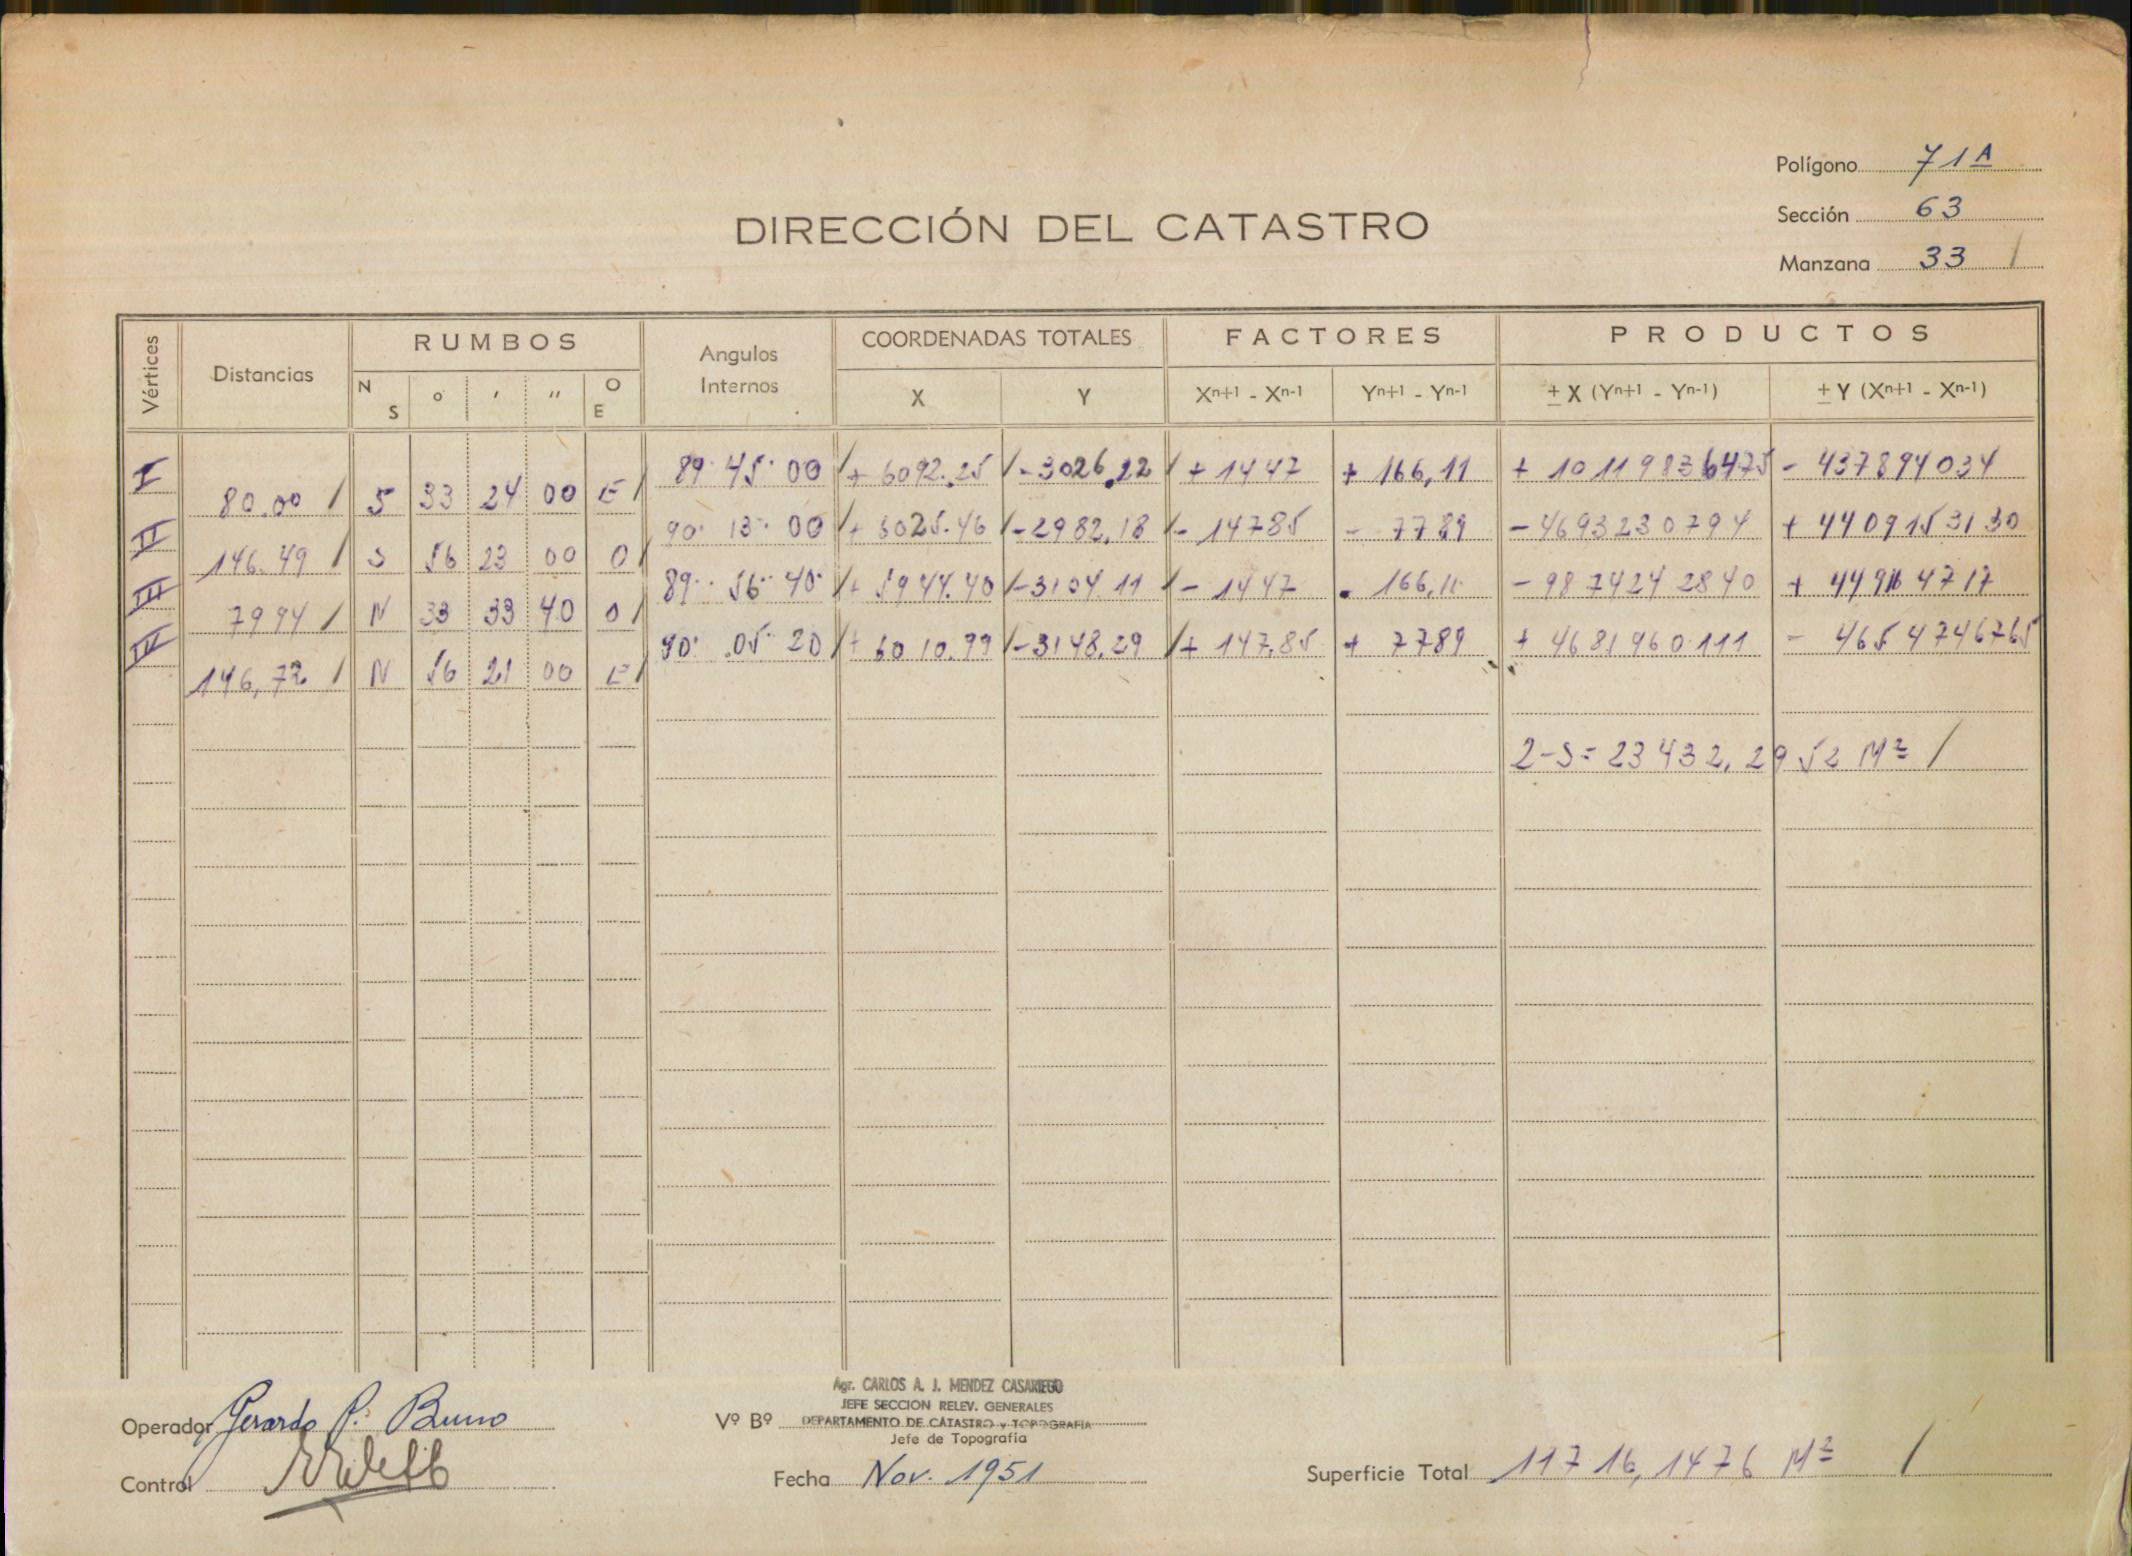 Polígono 71A
Sección 63
Manzana 33 /
DIRECCIÓN DEL CATASTRO
Vértices Distancias RUMBOS Angulos Internos COORDENADAS TOTALES FACTORES PRODUCTOS
N S ° ' '' O E X Y Xn+1 - Xn-1 Yn+1 - Yn-1 ± X (Yn+1 - Yn-1) ± Y (Xn+1 - Xn-1)
I 89· 45· 00 / + 6092.25 / - 3026.22 / + 1447 + 166,11 + 10119836475 - 437894034
80.00 / S 33 24 00 E /
II 90· 13· 00 / + 6025.46 / - 2982,18 / - 14785 - 7789 - 4693230794 + 4409153130
146.49 / S 56 23 00 O /
III 89· 56· 40· / + 5944.40 / - 3104 11 / - 1447 - 166,11 - 9874242840 + 449164717
7994 / N 33 33 40 O /
IV 90· 05· 20 / + 6010.99 / - 3148,29 / + 147,85 + 7789 + 4681960111 - 4654746765
146,72 / N 56 21 00 E /
2-S= 23432,2952 M² /
Agr. CARLOS A. J. MENDEZ CASARIEGO
JEFE SECCION RELEV. GENERALES
DEPARTAMENTO DE CATASTRO y TOPOGRAFIA
Operador Gerardo P. Bruno Vº Bº Jefe de Topografía
Control Fecha Nov. 1951 Superficie Total 11716,1476 M² /